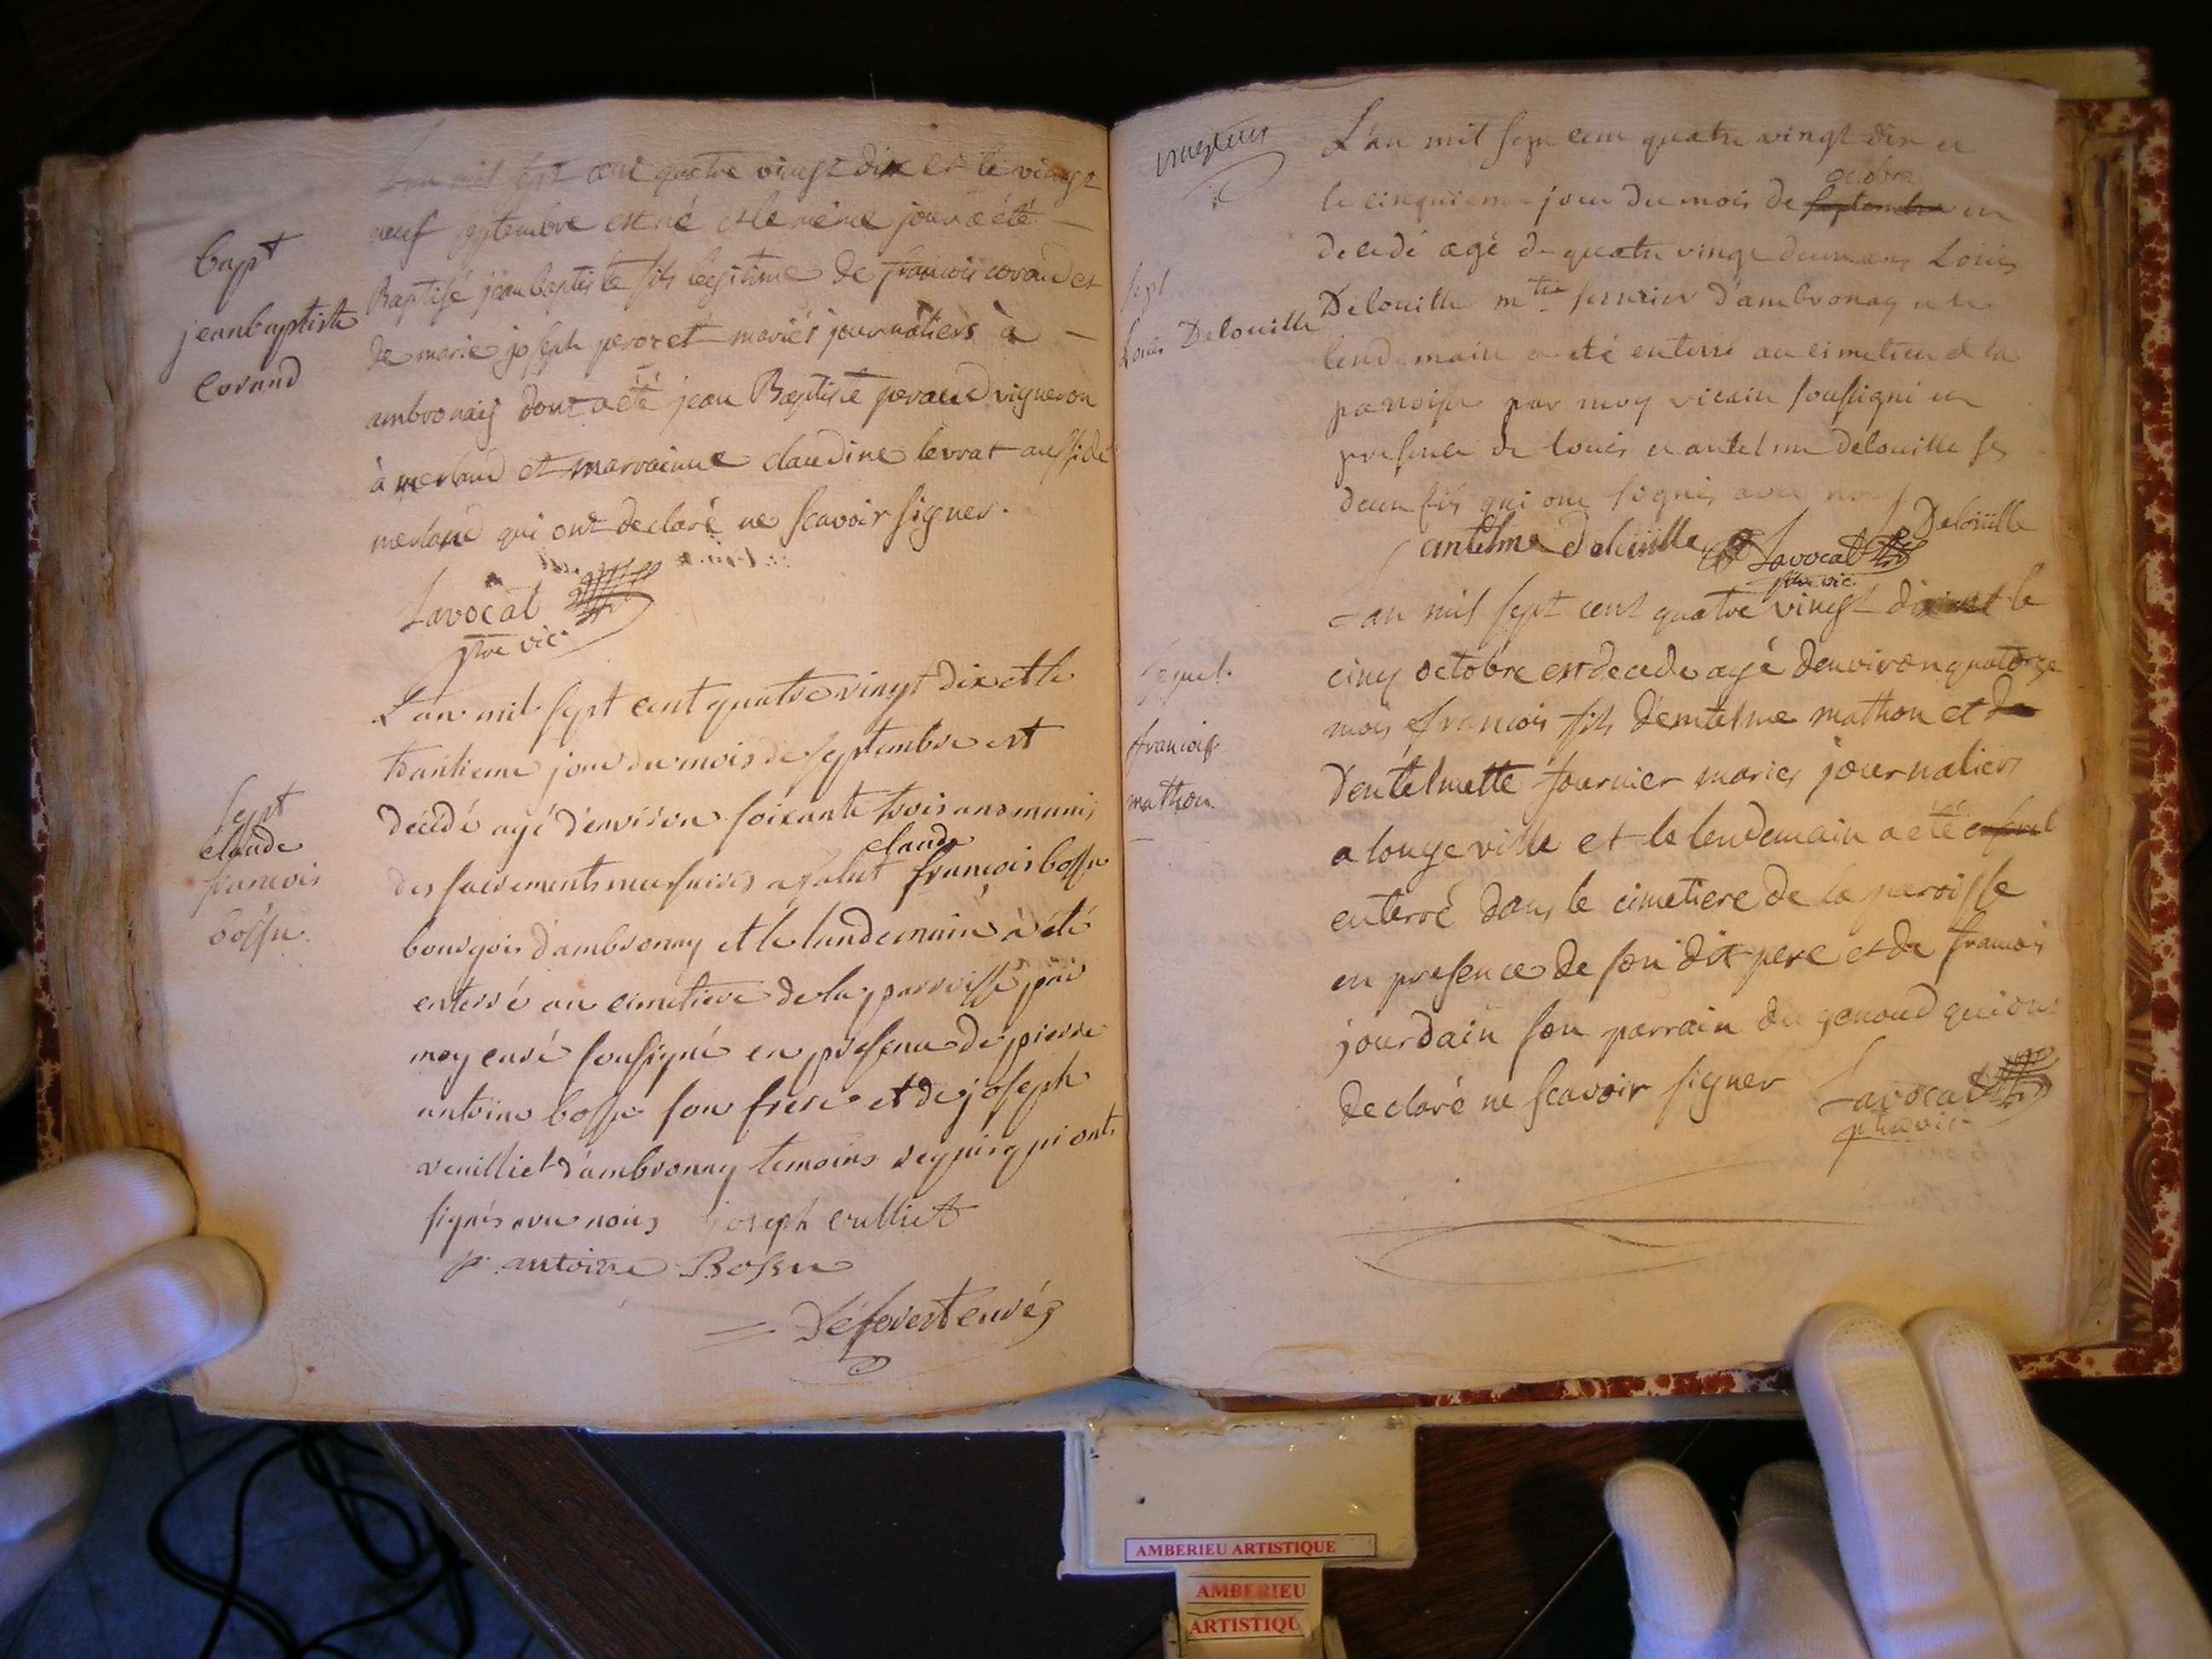 L'an mil sept cent quatre vingt dix et le vingt
neuf septembre est né et le même jour a été
bapt
Baptisé jean baptiste fils legitime de francois corand et
jeanbaptiste
de marie joseph perozet mariés journaliers à
corand
ambronay dont a été jean Baptiste peraud vigneron
à merland et marrainne claudine levrat aussi de
merland qui ont declaré ne scavoir signer.
Lavocat
ptre vic
L'an mil sept cent quatre vingt dix et le
trantieme jour du mois de septembre est
sept
décédé agé d'environ soixante trois ans munis
claude
claude
des sacrements francois bossu
francois
bossu.
bourgois d'ambronay et le landemain à été
enterré au cimetiere de la parroisse par
moy curé soussigné en presence de pierre
antoine bossu son frere et de joseph
vuilliet d'ambronay temoins requis qui ont
signés avec nous joseph vulliet
p. antoine Bossu
Déforest curé
vingt
L'an mil sept cent quatre vingt dix et
octobre
le cinquieme jour du mois de septembre est
decedé agé de quatre vingt deux ans Louis
sept
Louis Delouille
Delouille d'ambronay et le
lendemain a été enterré au cimetiere de la
paroisse par moy vicaire soussigné en
presence de louis et antelme delouille ses
deux fils qui ont signés avec nous
Delouille
antelme delouille Lavocat
ptre vic
L'an mil sept cent quatre vingt dix et le
cinq octobre est decede agé d'environ quatorze
sepul.
mois francois fils d'entelme mathon et de
francois
d'entelmette fournier mariés journaliers
mathon
a longeville et le lendemain a été
enterré dans le cimetiere de la paroisse
en presence de son dit pere et de francois
jourdain son parrain du genoud qui ont
declaré ne scavoir signer Lavocat
ptre vic
AMBERIEU ARTISTIQUE
AMBERIEU
ARTISTIQU